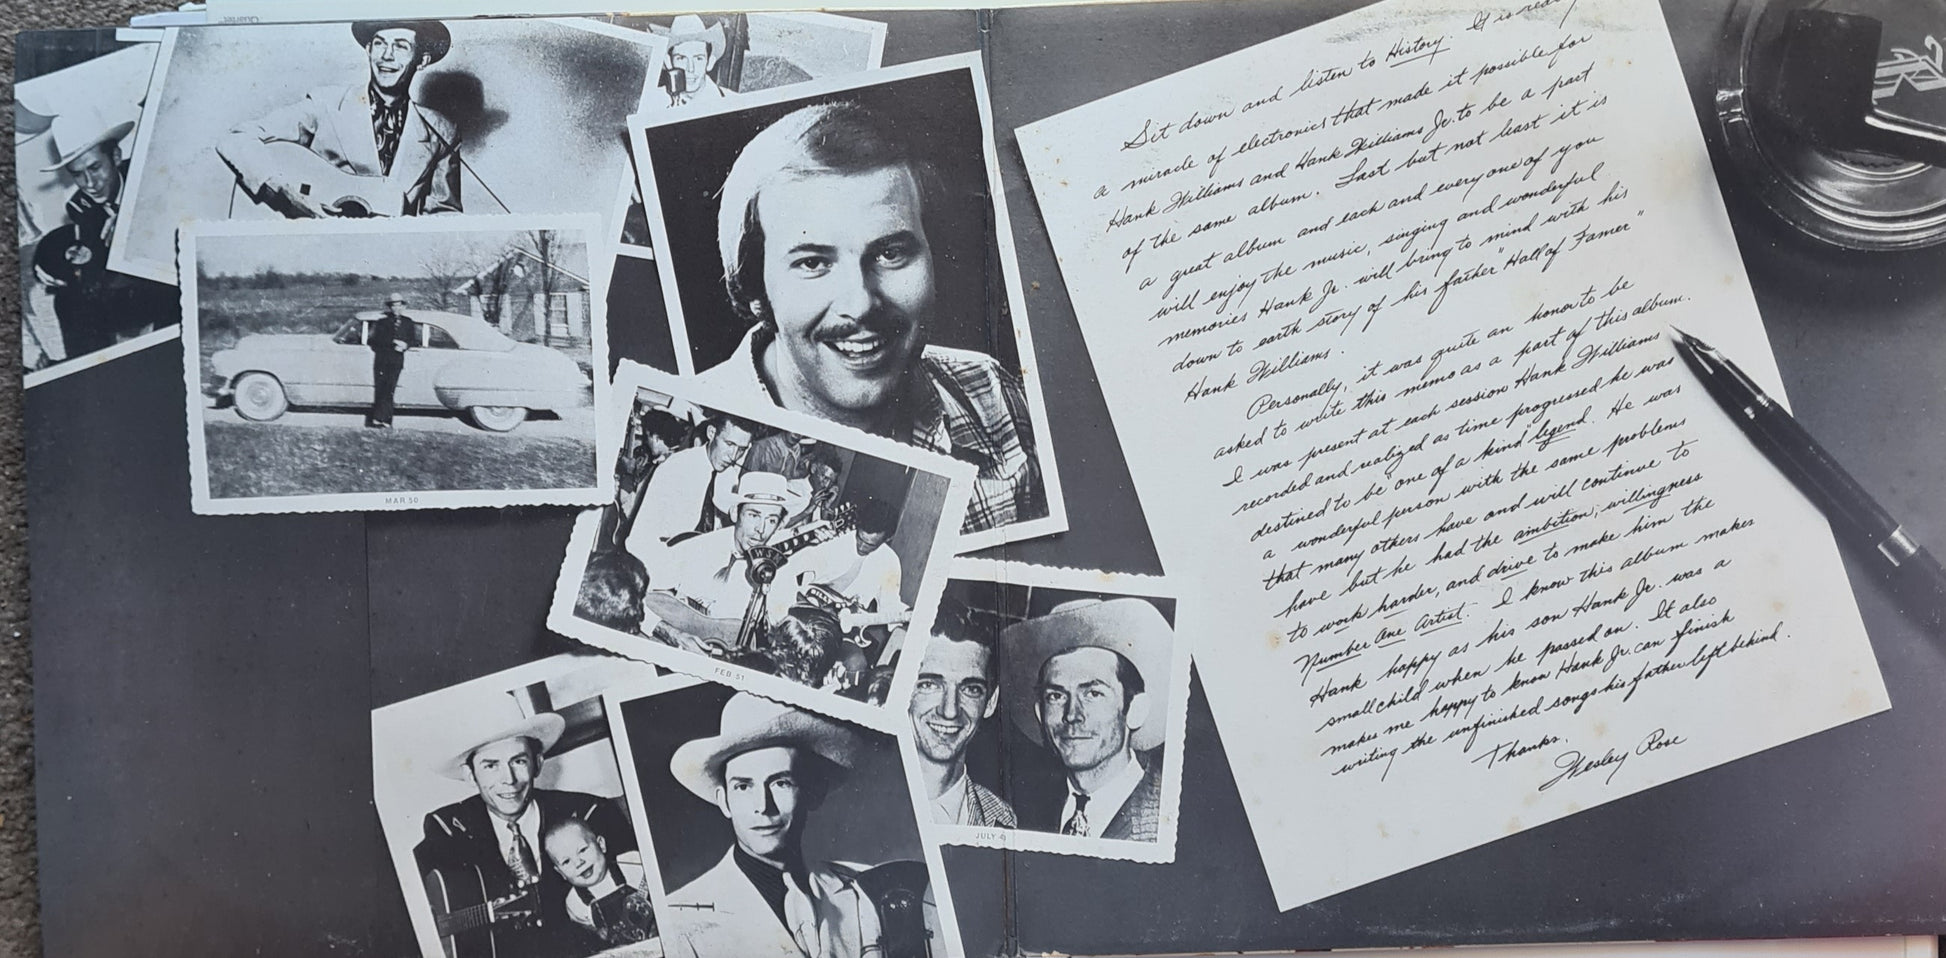 Quartet
MAR 50
FEB 51
JULY 4
WS
Sit down and listen to History. It is really
a miracle of electronics that made it possible for
Hank Williams and Hank Williams Jr. to be a part
of the same album. Last but not least it is
a great album and each and every one of you
will enjoy the music, singing and wonderful
memories Hank Jr. will bring to mind with his
down to earth story of his father "Hall of Famer"
Hank Williams.
Personally, it was quite an honor to be
asked to write this memo as a part of this album.
I was present at each session Hank Williams
recorded and realized as time progressed he was
destined to be "one of a kind" legend. He was
a wonderful person with the same problems
that many others have and will continue to
have but he had the ambition, willingness
to work harder, and drive to make him the
Number One Artist. I know this album makes
Hank happy as his son Hank Jr. was a
small child when he passed on. It also
makes me happy to know Hank Jr. can finish
writing the unfinished songs his father left behind.
Thanks.
Wesley Rose